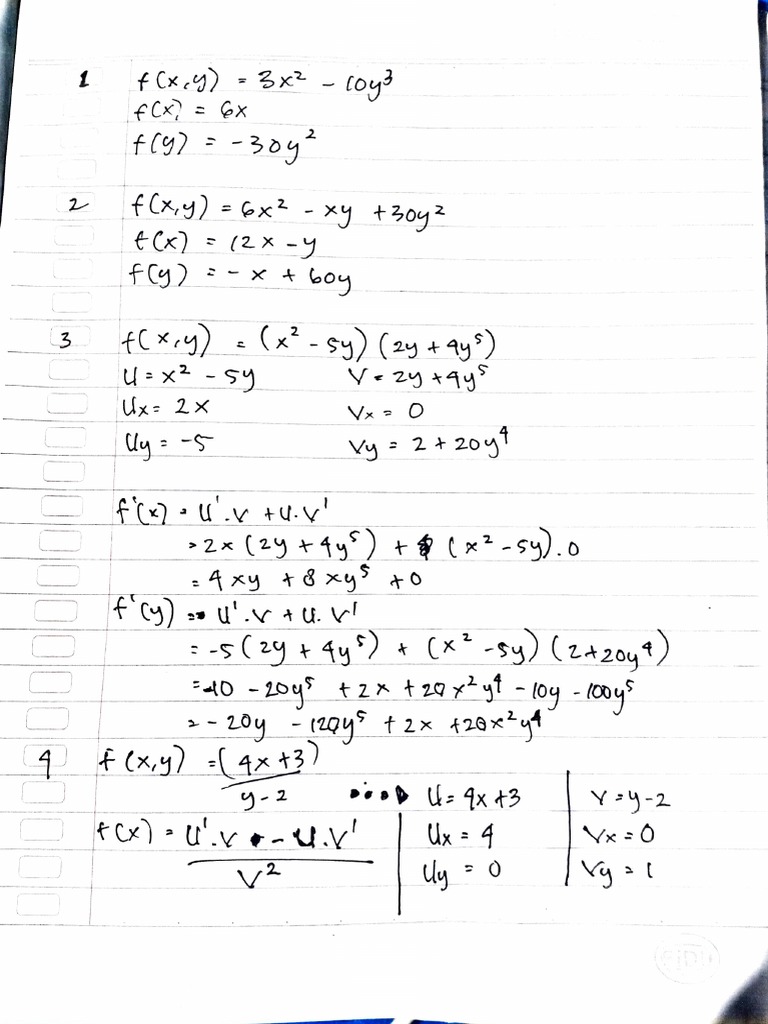 1 f(x,y) = 3x² - 10y³
f(x) = 6x
f(y) = -30y²
2 f(x,y) = 6x² - xy + 30y²
f(x) = 12x - y
f(y) = - x + 60y
3 f(x,y) = (x² - 5y) (2y + 4y⁵)
U = x² - 5y V = 2y + 4y⁵
Ux = 2x Vx = 0
Uy = -5 Vy = 2 + 20y⁴
f'(x) = U'.V + U.V'
= 2x (2y + 4y⁵) + (x² - 5y).0
= 4xy + 8xy⁵ + 0
f'(y) = U'.V + U.V'
= -5 (2y + 4y⁵) + (x² - 5y) (2 + 20y⁴)
= -10 - 20y⁵ + 2x + 20x²y⁴ - 10y - 100y⁵
= - 20y - 120y⁵ + 2x + 20x²y⁴
4 f(x,y) = (4x + 3)
y - 2 U = 4x + 3 V = y - 2
f(x) = U'.V - U.V' Ux = 4 Vx = 0
V² Uy = 0 Vy = 1